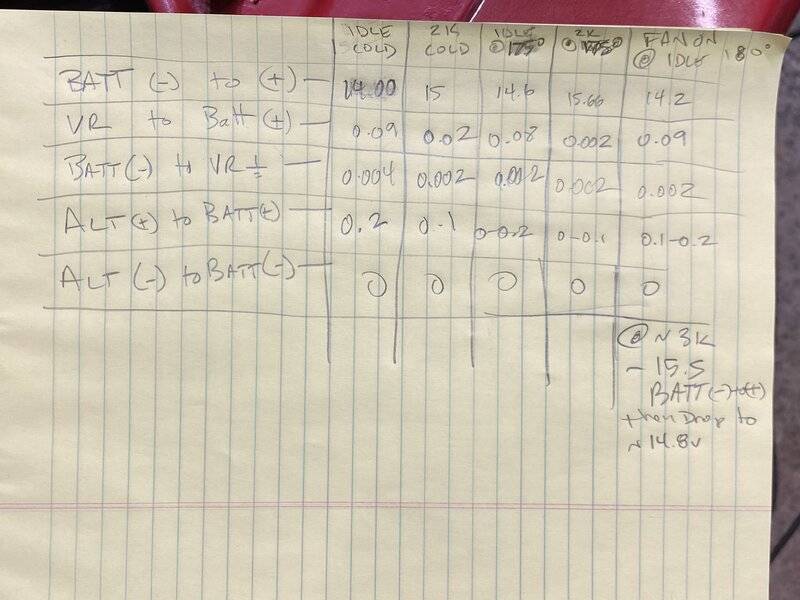 IDLE COLD 2K COLD IDLE @ 175° 2K @ 175° FAN ON @ IDLE 180°
BATT (-) to (+) — 14.00 15 14.6 15.66 14.2
VR to Batt (+) — 0.09 0.02 0.08 0.002 0.09
BATT (-) to VR ⏚ — 0.004 0.002 0.002 0.002 0.002
ALT (+) to BATT (+) — 0.2 0.1 0-0.2 0-0.1 0.1-0.2
ALT (-) to BATT (-) — 0 0 0 0 0
@ ~ 3K
- 15.5
BATT (-) to (+)
then Drop to
~ 14.8v